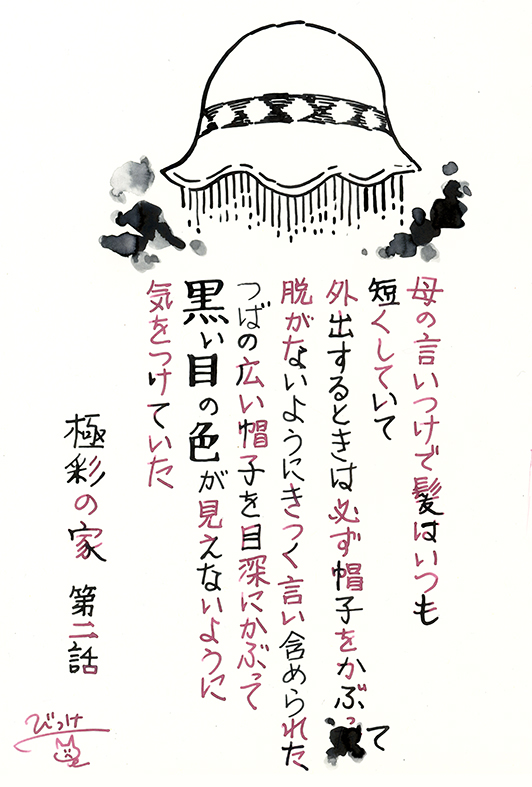 母の言いつけで髪はいつも
短くしていて
外出するときは必ず帽子をかぶって
脱がないようにきつく言い含められた、
つばの広い帽子を目深にかぶって
黒い目の色が見えないように
気をつけていた
極彩の家 第二話
びっけ